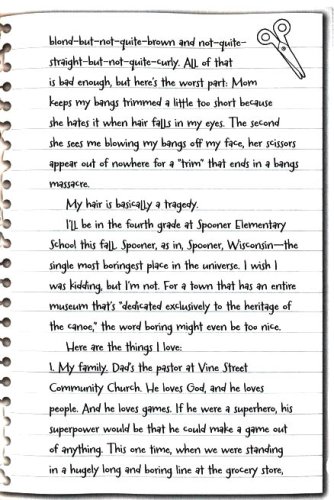 blond-but-not-quite-brown and not-quite-
straight-but-not-quite-curly. All of that
is bad enough, but here's the worst part: Mom
keeps my bangs trimmed a little too short because
she hates it when hair falls in my eyes. The second
she sees me blowing my bangs off my face, her scissors
appear out of nowhere for a "trim" that ends in a bangs
massacre.
My hair is basically a tragedy.
I'll be in the fourth grade at Spooner Elementary
School this fall. Spooner, as in, Spooner, Wisconsin—the
single most boringest place in the universe. I wish I
was kidding, but I'm not. For a town that has an entire
museum that's "dedicated exclusively to the heritage of
the canoe," the word boring might even be too nice.
Here are the things I love:
1. My family. Dad's the pastor at Vine Street
Community Church. He loves God, and he loves
people. And he loves games. If he were a superhero, his
superpower would be that he could make a game out
of anything. This one time, when we were standing
in a hugely long and boring line at the grocery store,